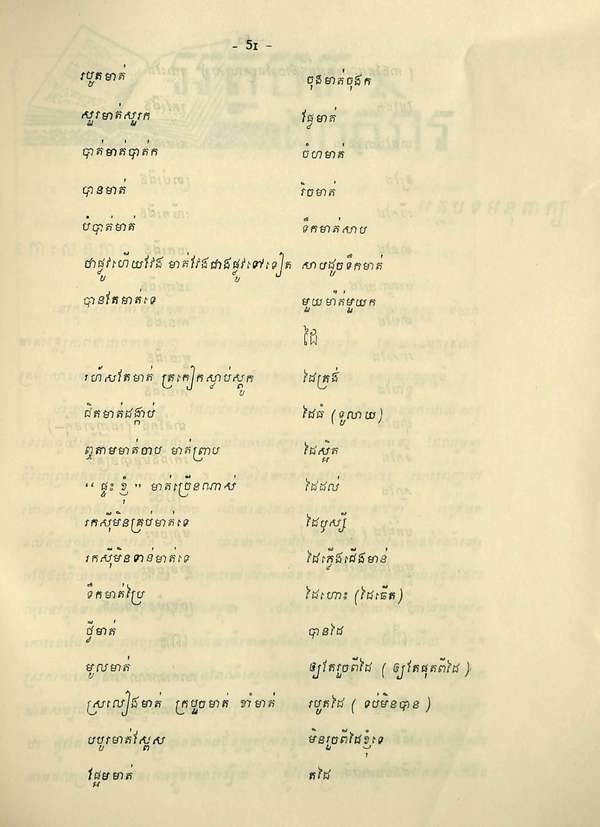 - 51 -
របូតមាត់
ចុងមាត់ចុងក
សួរមាត់សួរក
ផ្ទៃមាត់
បាត់មាត់បាត់ក
ចំហមាត់
បានមាត់
រិចមាត់
បំបាត់មាត់
ទឹកមាត់សាប
ថាផ្លូវហើយវែង មាត់វែងជាងផ្លូវទៅទៀត
សាបដូចទឹកមាត់
បានតែមាត់ទេ
មួយម៉ាត់មួយក
ដៃ
រហ័សតែមាត់ ត្រកៀកស្លាប់ស្តូក
ដៃត្រង់
ជិតមាត់ដង្កាប់
ដៃធំ ( ទូលាយ )
ឮតាមមាត់ចាប មាត់ព្រាប
ដៃស្អិត
“ ផ្ទុះ ខ្ញុំ ” មាត់ច្រើនណាស់
ដៃដល់
រកស៊ីមិនគ្រប់មាត់ទេ
ដៃឫស្សី
រកស៊ីមិនទាន់មាត់ទេ
ដៃភ្លើងជើងមាន់
ទឹកមាត់ប្រៃ
ដៃហោះ ( ដៃឆើត )
ធ្វើមាត់
បានដៃ
មូលមាត់
ឲ្យតែរួចពីដៃ ( ឲ្យតែផុតពីដៃ )
ស្រលៀងមាត់ ក្របួចមាត់ ខាំមាត់
របូតដៃ ( ទប់មិនបាន )
បបូរមាត់ស្តែស
មិនរួចពីដៃខ្ញុំទេ
ផ្អែមមាត់
តដៃ